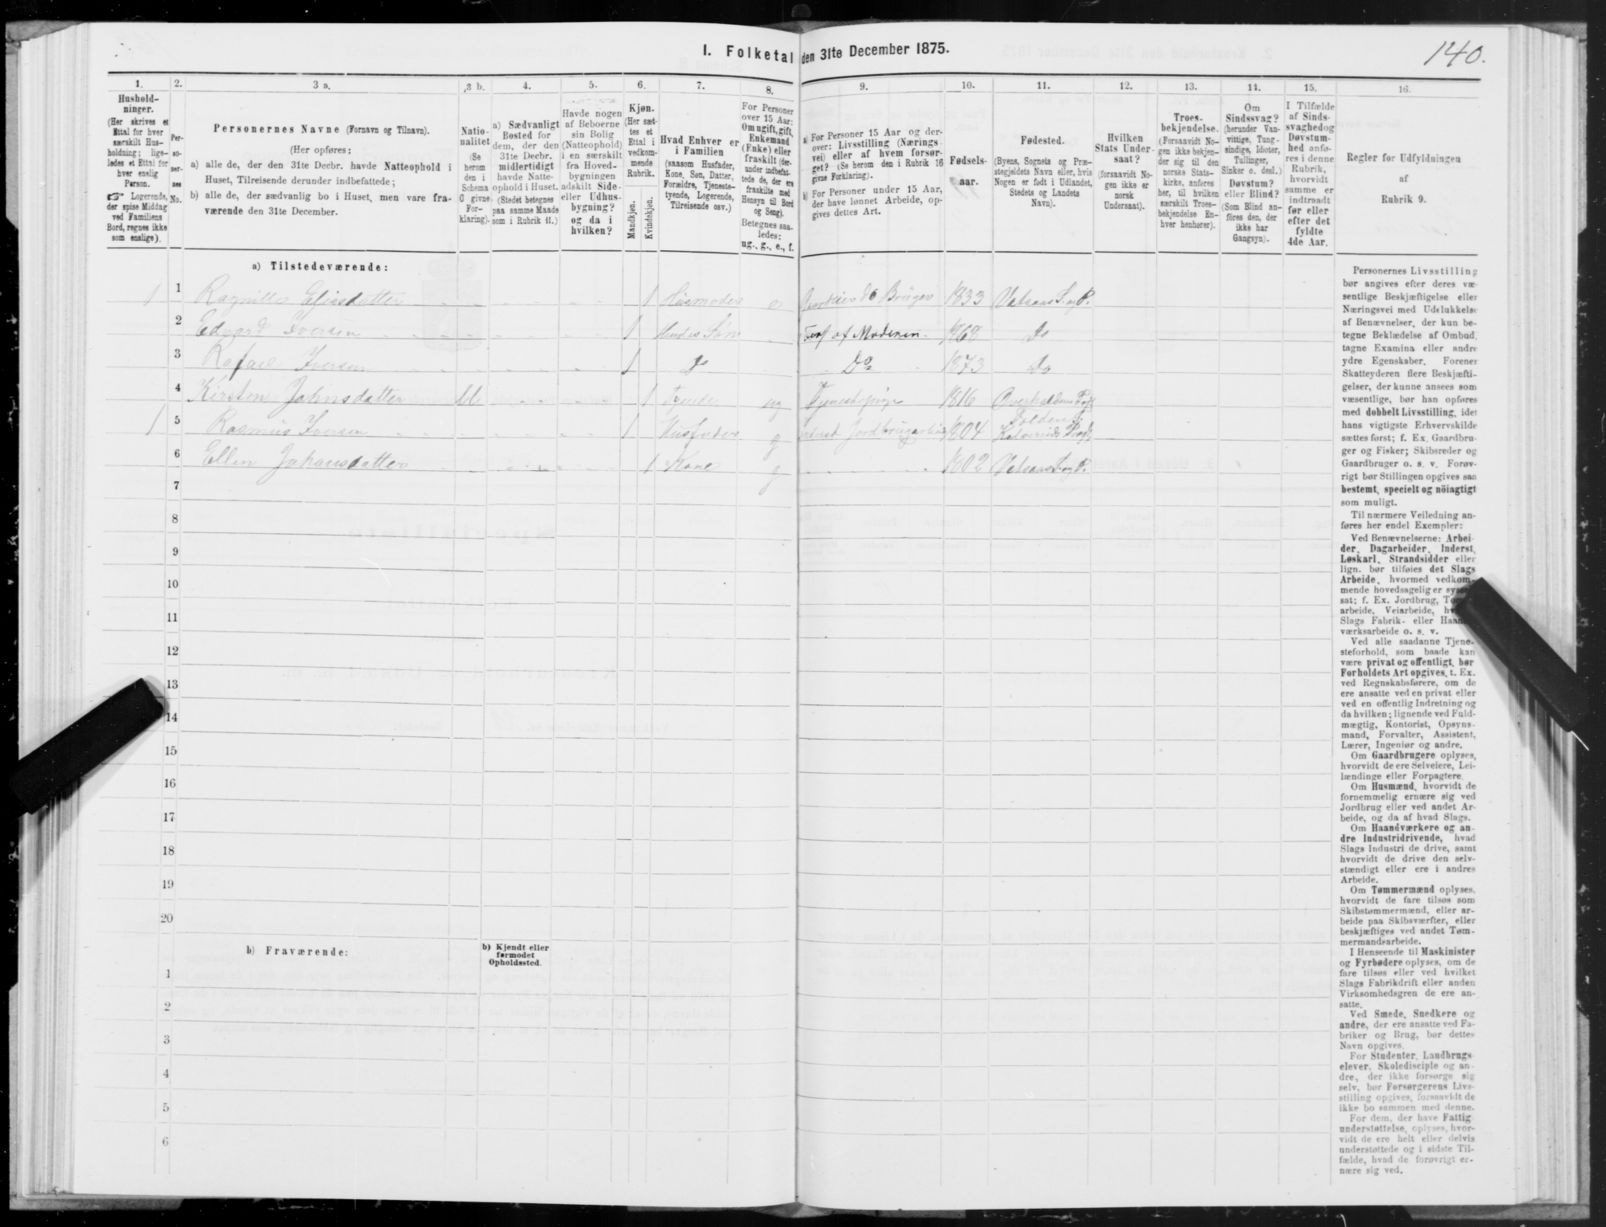 I. Folketal den 31te December 1875.
140.
1.
Hushold-
ninger.
(Her skrives et
Ettal for hver
særskilt Hus-
holdning; lige-
ledes et Ettal for
hver enslig
Person.
☞ Logerende,
der spise Middag
ved Familiens
Bord, regnes ikke
som enslige).
2.
Per-
so-
ner-
nes
No.
3 a.
Personernes Navne (Fornavn og Tilnavn).
(Her opføres;
a) alle de, der den 31te Decbr. havde Natteophold i
Huset, Tilreisende derunder indbefattede;
b) alle de, der sædvanlig bo i Huset, men vare fra-
værende den 31te December.
3 b.
Natio-
nalitet
(Se
herom
den i
Schema
C givne
For-
klaring).
4.
a) Sædvanligt
Bosted for
dem, der den
31te Decbr.
midlertidigt
havde Natte-
ophold i Huset.
(Stedet betegnes
paa samme Maade
som i Rubrik 11.)
5.
Havde nogen
af Beboerne
sin Bolig
(Natteophold)
i en særskilt
fra Hoved-
bygningen
adskilt Side-
eller Udhus-
bygning?
og da i
hvilken?
6.
Kjøn.
(Her sæt-
tes et
Ettal i
vedkom-
mende
Rubrik.
Mandkjøn.
Kvindekjøn.
7.
Hvad Enhver er
i Familien
(saasom Husfader,
Kone, Søn, Datter,
Forældre, Tjeneste-
tyende, Logerende,
Tilreisende osv.)
8.
For Personer
over 15 Aar:
Om ugift, gift,
Enkemand
(Enke) eller
fraskilt (der-
under indbefat-
tede de, der ere
fraskilte med
Hensyn til Bord
og Seng).
Betegnes saa-
ledes:
ug., g., e., f.
9.
a) For Personer 15 Aar og der-
over: Livsstilling (Nærings-
vei) eller af hvem forsør-
get? (Se herom den i Rubrik 16
givne Forklaring).
b) For Personer under 15 Aar,
der have lønnet Arbeide, op-
gives dettes Art.
10.
Fødsels-
aar.
11.
Fødested.
(Byens, Sognets og Præ-
stegjeldets Navn eller, hvis
Nogen er født i Udlandet,
Stedets og Landets
Navn).
12.
Hvilken
Stats Under-
saat?
(forsaavidt No-
gen ikke er
norsk
Undersaat).
13.
Troes-
bekjendelse.
(Forsaavidt No-
gen ikke bekjen-
der sig til den
norske Stats-
kirke, anføres
her, til hvilken
særskilt Troes-
bekjendelse En-
hver henhører).
14.
Om
Sindssvag?
(herunder Van-
vittige, Tung-
sindige, Idioter,
Tullinger,
Sinker o. desl.)
Døvstum?
eller Blind?
(Som Blind an-
føres den, der
ikke har
Gangsyn).
15.
I Tilfælde
af Sinds-
svaghed og
Døvstum-
hed anfø-
res i denne
Rubrik,
hvorvidt
samme er
indtraadt
før eller
efter det
fyldte
4de Aar.
16.
Regler for Udfyldningen
af
Rubrik 9.
a) Tilstedeværende:
1 1 Elisdatter 1 e Bruger 1833
2 Edvard Iversen 1 Hendes Søn Fors. af Moderen. 1868 Do
3 Iversen 1 Do Do 1873 Do
4 1 ug 1816
1 5 Rasmus Iversen 1 Husfader g 1804
6 Ellen Johansdatter 1 Kone g 1802
7
8
9
10
11
12
13
14
15
16
17
18
19
20
b) Fraværende:
b) Kjendt eller
formodet
Opholdssted.
1
2
3
4
5
6
Personernes Livsstilling
bør angives efter deres væ-
sentlige Beskjæftigelse eller
Næringsvei med Udelukkelse
af Benævnelser, der kun be-
tegne Beklædelse af Ombud,
tagne Examina eller andre
ydre Egenskaber. Forener
Skatteyderen flere Beskjæfti-
gelser, der kunne ansees som
væsentlige, bør han opføres
med dobbelt Livsstilling, idet
hans vigtigste Erhvervskilde
sættes først; f. Ex. Gaardbru-
ger og Fisker; Skibsreder og
Gaardbruger o. s. v. Forøv-
rigt bør Stillingen opgives saa
bestemt, specielt og nöiagtigt
som muligt.
Til nærmere Veiledning an-
føres her endel Exempler:
Ved Benævnelserne: Arbei-
der, Dagarbeider, Inderst,
Løskarl, Strandsidder eller
lign. bør tilføies det Slags
Arbeide, hvormed vedkom-
mende hovedsagelig er
sat; f. Ex. Jordbrug,
arbeide, Veiarbeide,
Slags Fabrik- eller
værksarbeide o. s. v.
Ved alle saadanne Tjene-
steforhold, som baade kan
være privat og offentligt, bør
Forholdets Art opgives, t. Ex.
ved Regnskabsførere, om de
ere ansatte ved en privat eller
ved en offentlig Indretning og
da hvilken; lignende ved Fuld-
mægtig, Kontorist, Opsyns-
mand, Forvalter, Assistent,
Lærer, Ingeniør og andre.
Om Gaardbrugere oplyses,
hvorvidt de ere Selveiere, Lei-
lændinge eller Forpagtere.
Om Husmænd, hvorvidt de
fornemmelig ernære sig ved
Jordbrug eller ved andet Ar-
beide, og da af hvad Slags.
Om Haandværkere og an-
dre Industridrivende, hvad
Slags Industri de drive, samt
hvorvidt de drive den selv-
stændigt eller ere i andres
Arbeide.
Om Tømmermænd oplyses,
hvorvidt de fare tilsøs som
Skibstømmermænd, eller ar-
beide paa Skibsværfter, eller
beskjæftiges ved andet Tøm-
mermandsarbeide.
I Henseende til Maskinister
og Fyrbødere oplyses, om de
fare tilsøs eller ved hvilket
Slags Fabrikdrift eller anden
Virksomhedsgren de ere an-
satte.
Ved Smede, Snedkere og
andre, der ere ansatte ved Fa-
briker og Brug, bør dettes
Navn opgives.
For Studenter, Landbrugs-
elever, Skoledisciple og an-
dre, der ikke forsørge sig
selv, bør Forsørgerens Livs-
stilling opgives, forsaavidt de
ikke bo sammen med denne.
For dem, der have Fattig-
understøttelse, oplyses, hvor-
vidt de ere helt eller delvis
understøttede og i sidste Til-
fælde, hvad de forøvrigt er-
nære sig ved.